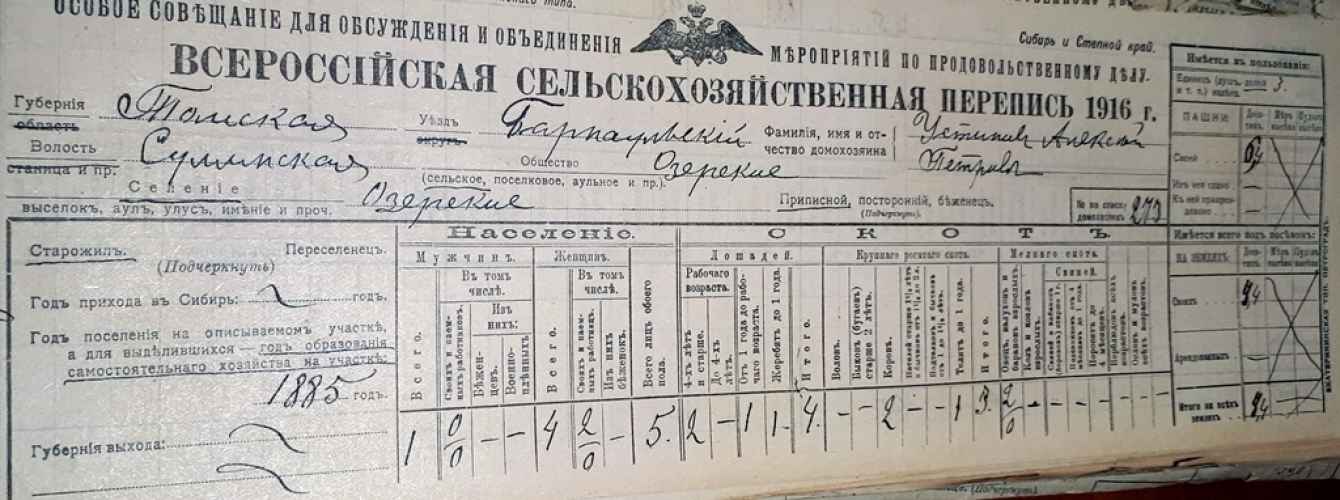 ОСОБОЕ СОВѢЩАНІЕ ДЛЯ ОБСУЖДЕНІЯ И ОБЪЕДИНЕНІЯ МѢРОПРІЯТІЙ ПО ПРОДОВОЛЬСТВЕННОМУ ДѢЛУ.
Сибирь и Степной край.
ВСЕРОССІЙСКАЯ СЕЛЬСКОХОЗЯЙСТВЕННАЯ ПЕРЕПИСЬ 1916 г.
Губернія Томская Уѣздъ Барнаульскій Фамилія, имя и от- Устинов Алексей
область округъ чество домохозяина Петров
Волость Общество Озерские
станица и пр. (сельское, поселковое, аульное и пр.)
Селеніе Озерские Приписной, посторонній, бѣженецъ.
выселокъ, аулъ, улусъ, имѣніе и проч. (Подчеркнуть).
№ по списку
домохозяинъ 273
Старожилъ. Переселенецъ.
(Подчеркнуть)
Годъ прихода въ Сибирь: годъ.
Годъ поселенія на описываемомъ участкѣ,
а для выдѣлившихся — годъ образованія
самостоятельнаго хозяйства на участкѣ:
1885 годъ.
Губернія выхода:
Населеніе.
Мужчинъ. Женщинъ.
Въ томъ числѣ. Въ томъ числѣ.
Изъ нихъ:
Всего.
Своихъ и наем-
ныхъ работниковъ.
Бѣжен-
цевъ.
Военно-
плѣнныхъ
Всего.
Своихъ и наем-
ныхъ работницъ.
Изъ нихъ
бѣженокъ.
Всего лицъ обоего
пола.
1 0/0 — — 4 2/0 — 5.
СКОТЪ
Лошадей.
Рабочаго
возраста.
4-хъ лѣтъ
и старше.
До 4-хъ
лѣтъ.
Отъ 1 года до рабо-
чаго возраста.
Жеребятъ до 1 года.
Итого.
2 — 1 1. 4.
Крупнаго рогатаго скота.
Воловъ.
Быковъ (бугаевъ)
старше 2 лѣтъ.
Коровъ.
Телятъ до 1 года.
Итого.
— — 2 — — 1 3.
Мелкаго скота.
Свиней.
2/0 — — — — — —
Имѣется въ пользованіи:
3.
ПАШНИ
Своей
Имѣется всего подъ посѣвомъ:
НА ЗЕМЛЯХЪ
Своихъ 9,4
Арендованныхъ —
Итого на всѣхъ
земляхъ 9,4